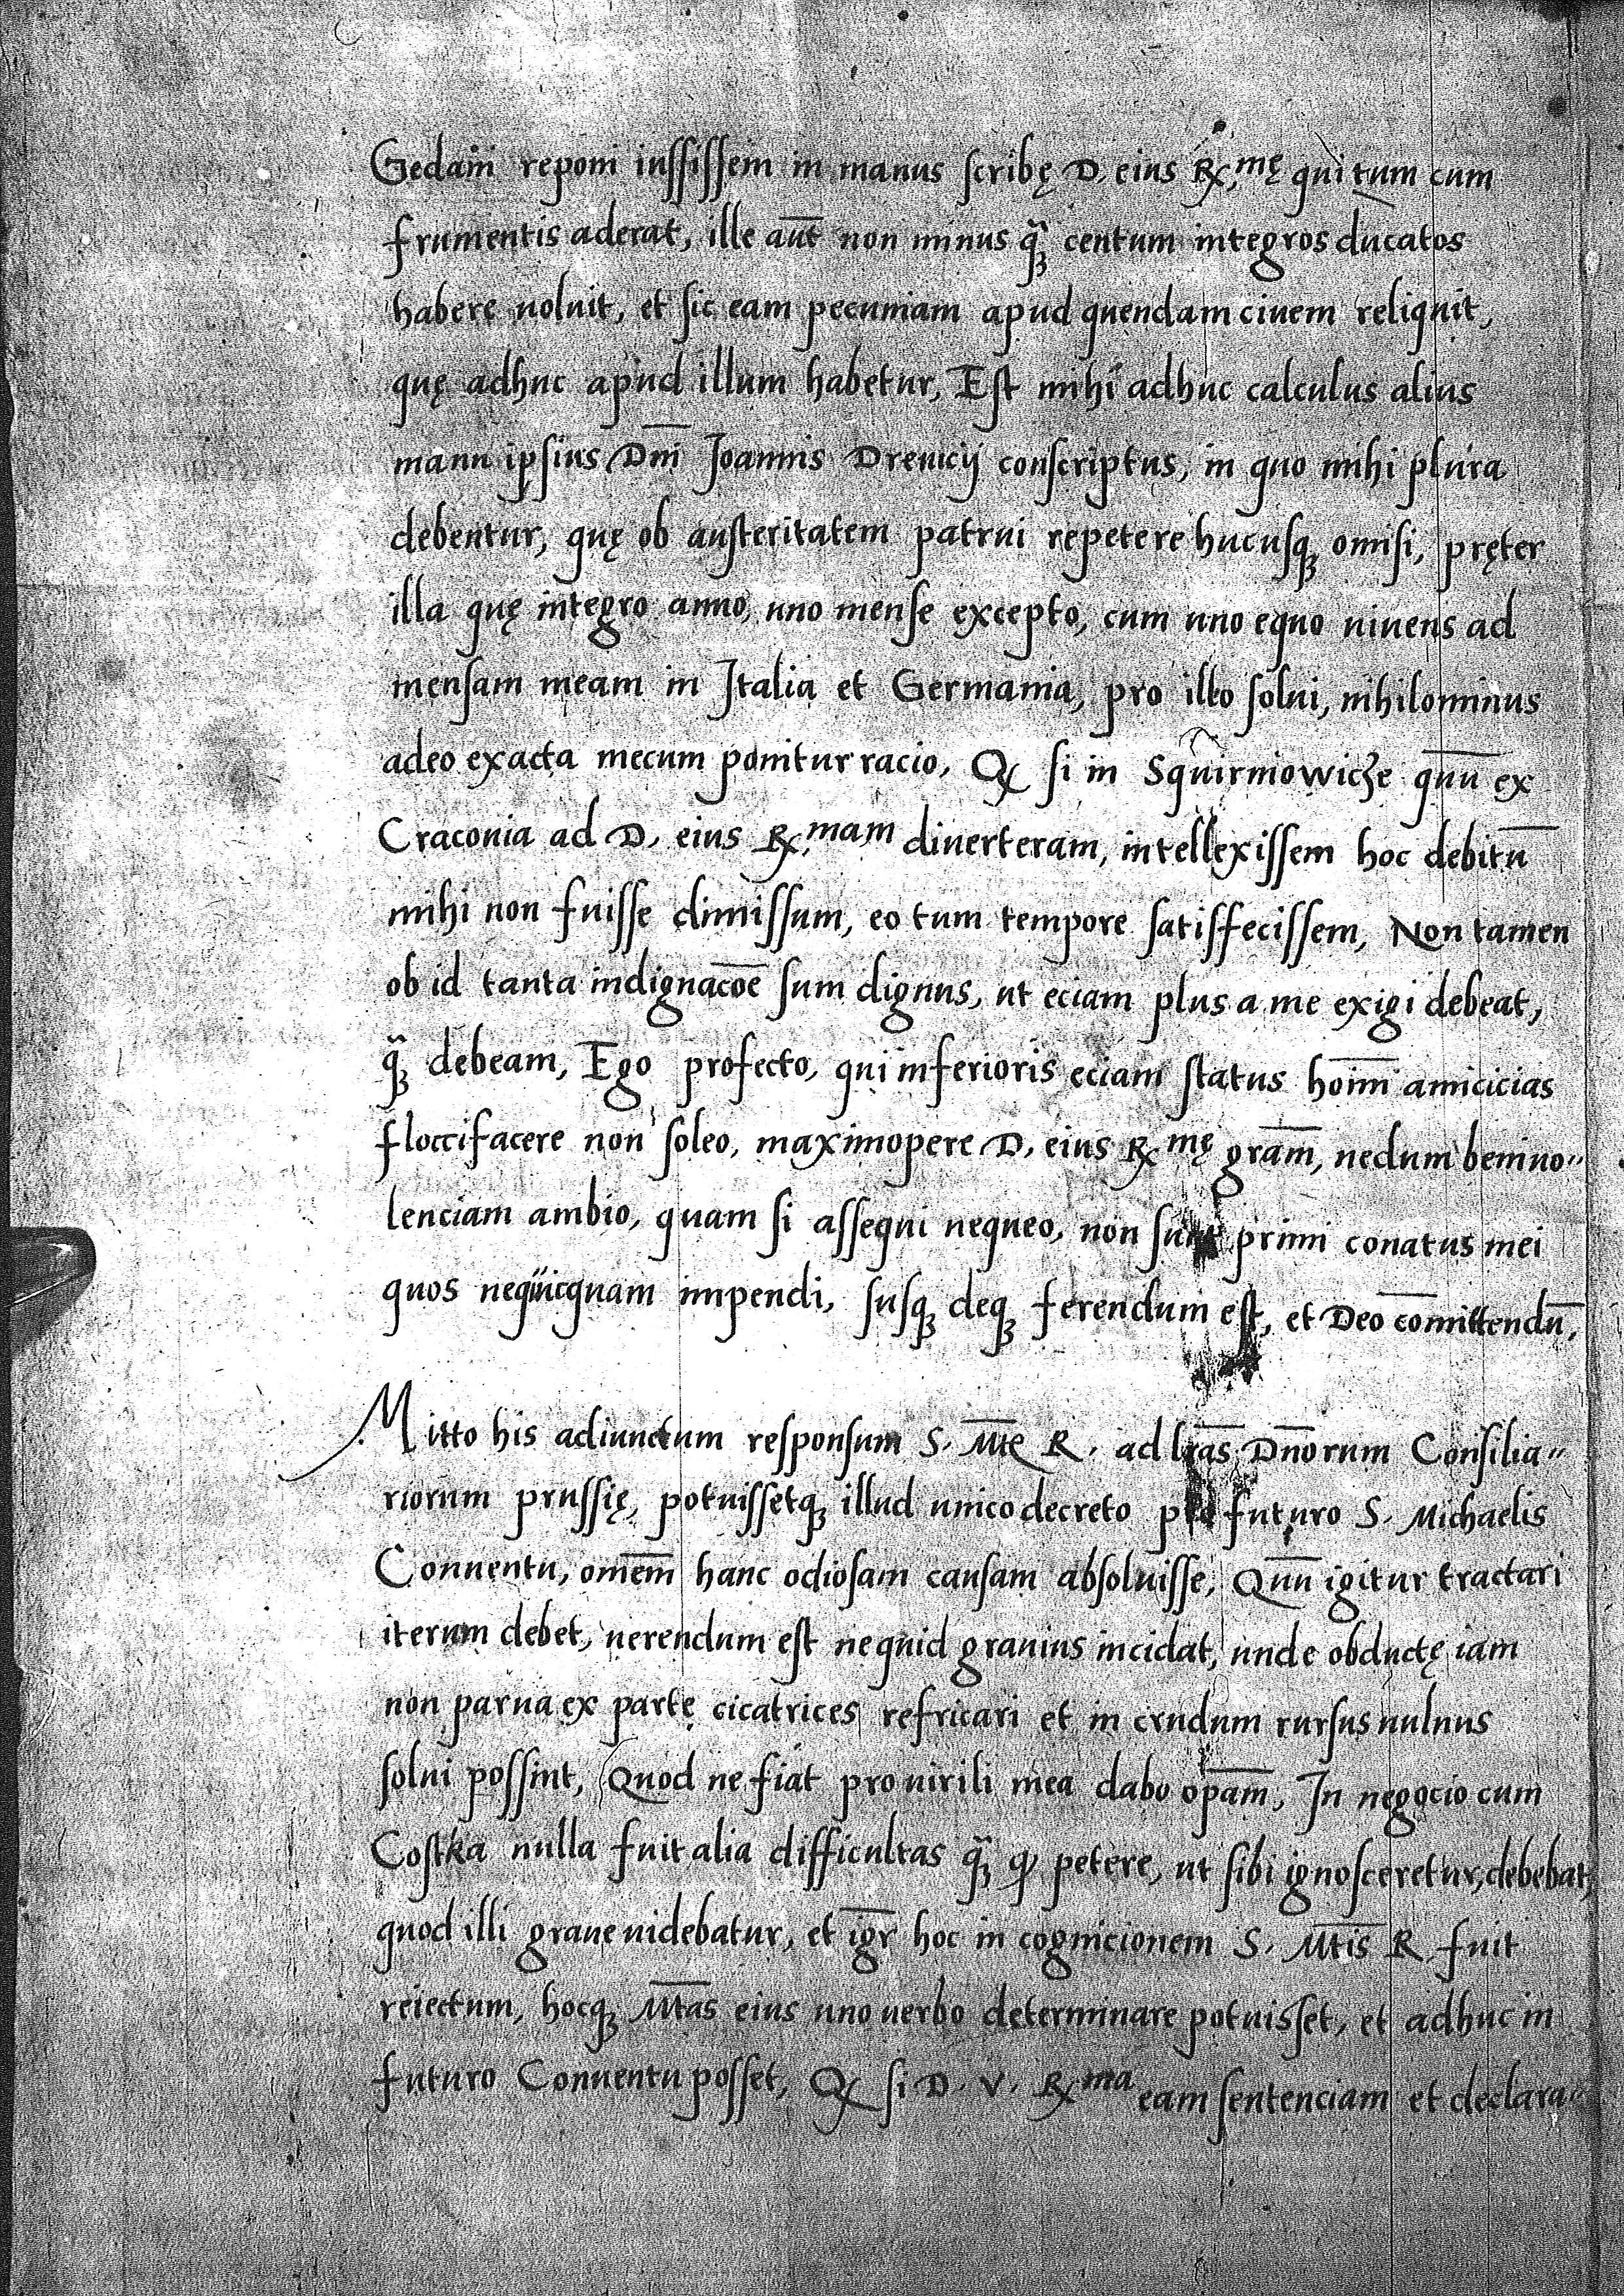 Gedani reponi iussissem in manus scribę D. eius Rx.mę qui tum cum
frumentis aderat, ille aut̄ non minus q̃ꝫ centum integros ducatos
habere uoluit, et sic eam pecuniam apud quendam ciuem reliquit,
quę adhuc apud illum habetur, Est mihi adhuc calculus alius
manu ipsius Dnī Joannis Dreuicij conscriptus, in quo mihi plura
debentur, quę ob austeritatem patrui repetere hucusqꝫ omisi, pręter
illa quę integro anno, uno mense excepto, cum uno equo uiuens ad
mensam meam in Italia et Germania, pro illo solui, nihilominus
adeo exacta mecum ponitur racio, Qx si in Squirniowicze quū ex
Cracouia ad D. eius Rx.mam diuerteram, intellexissem hoc debitū
mihi non fuisse dimissum, eo tum tempore satisfecissem, Non tamen
ob id tanta indignacōe sum dignus, ut eciam plus a me exigi debeat,
q̃ꝫ debeam, Ego profecto, qui inferioris eciam status hoīm amicicias
floccifacere non soleo, maximopere D. eius Rx mę grām, nedum beniuo„
lenciam ambio, quam si assequi nequeo, non sunt primi conatus mei
quos nequicquam impendi, susqꝫ deqꝫ ferendum est, et Deo cōmittendū,
Mitto his adiunctum responsum S. Mtē R. ad lrās Dnōrum Consilia„
riorum prussię, potuissetqꝫ illud unico decreto pro futuro S. Michaelis
Conuentu, omēm hanc odiosam causam absoluisse, Quū igitur tractari
iterum debet, uerendum est nequid grauius incidat, unde obductę iam
non parua ex parte cicatrices refricari et in crudum rursus uulnus
solui possint, Quod ne fiat pro uirili mea dabo opām, In negocio cum
Costka nulla fuit alia difficultas q̃ꝫ ꝙ petere, ut sibi ignosceretur, debebat,
quod illi graue uidebatur, et igr̄ hoc in cognicionem S. Mtīs R fuit
reiectum, hocqꝫ Mtās eius uno uerbo determinare potuisset, et adhuc in
futuro Conuentu posset, Qx si D. V. Rx ma eam sentenciam et declara„